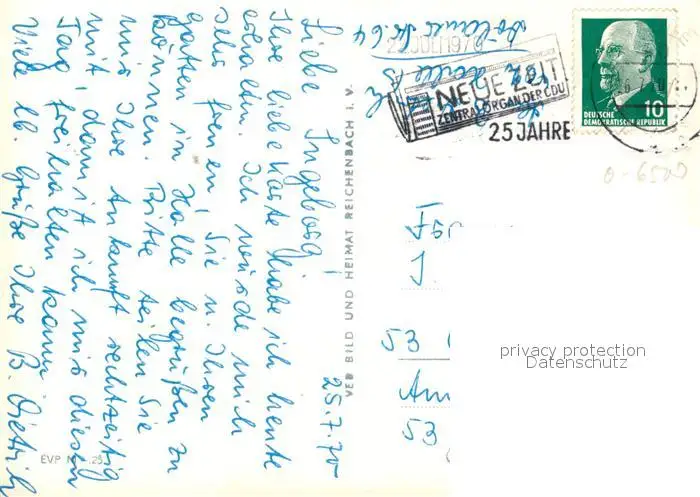 25.7.70
Liebe Ingeborg!
Ihre liebe Karte habe ich heute
erhalten. Ich würde mich
sehr freuen, Sie u. Ihren
Gatten in Halle begrüßen zu
können. Bitte teilen Sie
mir Ihre Ankunft rechtzeitig
mit, damit ich mir diesen
Tag freihalten kann.
Viele lb. Grüße Ihre B. Dietrich
VEB BILD UND HEIMAT REICHENBACH i. V.
EVP
NEUE ZEIT
ZENTRALORGAN DER CDU
25 JAHRE
DEUTSCHE
DEMOKRATISCHE REPUBLIK
10
0-6500
53
53
privacy protection
Datenschutz